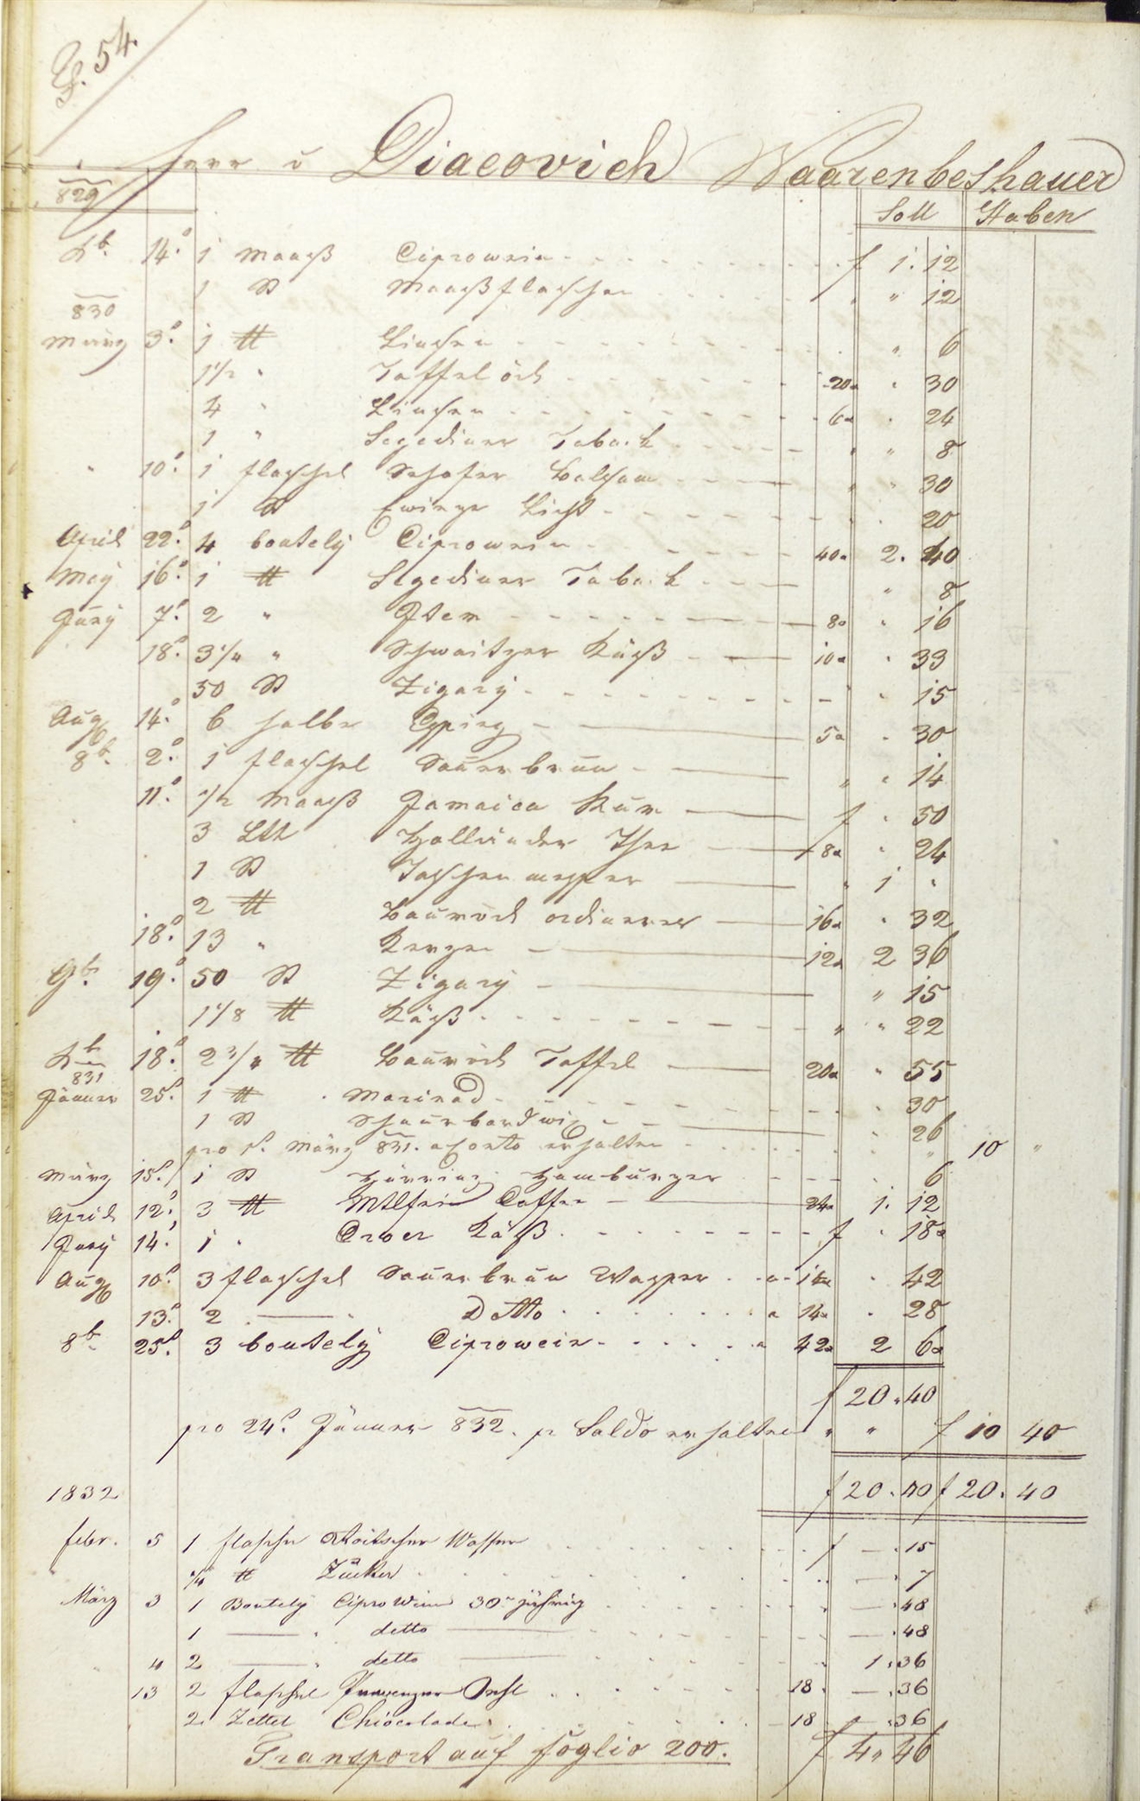 54.
Herr v Diacovich Waarenbeshauer
829 Soll Haben
Xb. 14. 1 Maaß Ciprowein f 1. 12
1 St Maaßflaschen " 12
830
März 3. 1 ℔ Linsen " 6
1 1/2 " Taffelöhl 20 " 30
4 " Linsen 6 " 24
1 " Segediner Taback " 8
" 10. 1 flaschel Schafer Balsam " 30
1 St Ewige Licht 20
April 22. 4 boutely Ciprowein 40 2. 40
Mey 16. 1 ℔ Segediner Taback " 8
Juny 7. 2 " Item 8 " 16
18. 3 1/4 " Schwaitzer Käß 10 " 33
50 St Zigary " 15
Aug 14. 6 halbe Eppig 5 " 30
8b. 2. 1 flaschel Sauerbrun " 14
11. 1/2 Maaß Jamaica Rum f " 50
3 Lth Hollunder Thee 8 " 24
1 St Taschenmesser " 1 "
2 ℔ Baumöhl ordinerer 16 " 32
18. 13 " Kerzen 12 2 36
9b. 19. 50 St Zigary " 15
1 1/8 ℔ Käß " " 22
Xb. 18. 2 3/4 ℔ Baumöhl Taffel 20 " 55
831
Jänner 25. 1 ℔ Marinad " 30
1 St " 26
pro 1. März 831. a Conto erhalten " 10 "
März 15. 1 St Häring Hamburger 6
April 12. 3 ℔ Mllfein Caffee 24 1. 12
Juny 14. 1 " Käß f " 18
Aug 10. 3 flaschel Sauerbrun Wasser a 14 " 42
13. 2 " Detto a 14 " 28
8b. 25. 3 boutely Ciprowein a 42 2 6
f 20. 40
pro 24. Jänner 832. pr Saldo erhalten " " f 10 40
f 20. 40 f 20. 40
1832
febr. 5 1 flasche Roitscher Wasser f — . 15
1/4 ℔ Zucker — . 7
März 3 1 Boutely Cipro Wein 30 jährig — . 48
1 — " detto — . 48
4 2 — " detto 1. 36
13 2 flaschel Oehl 18 — . 36
2 Zettel Chiocolade 18 . 36
Transport auf foglio 200. f 4 " 46